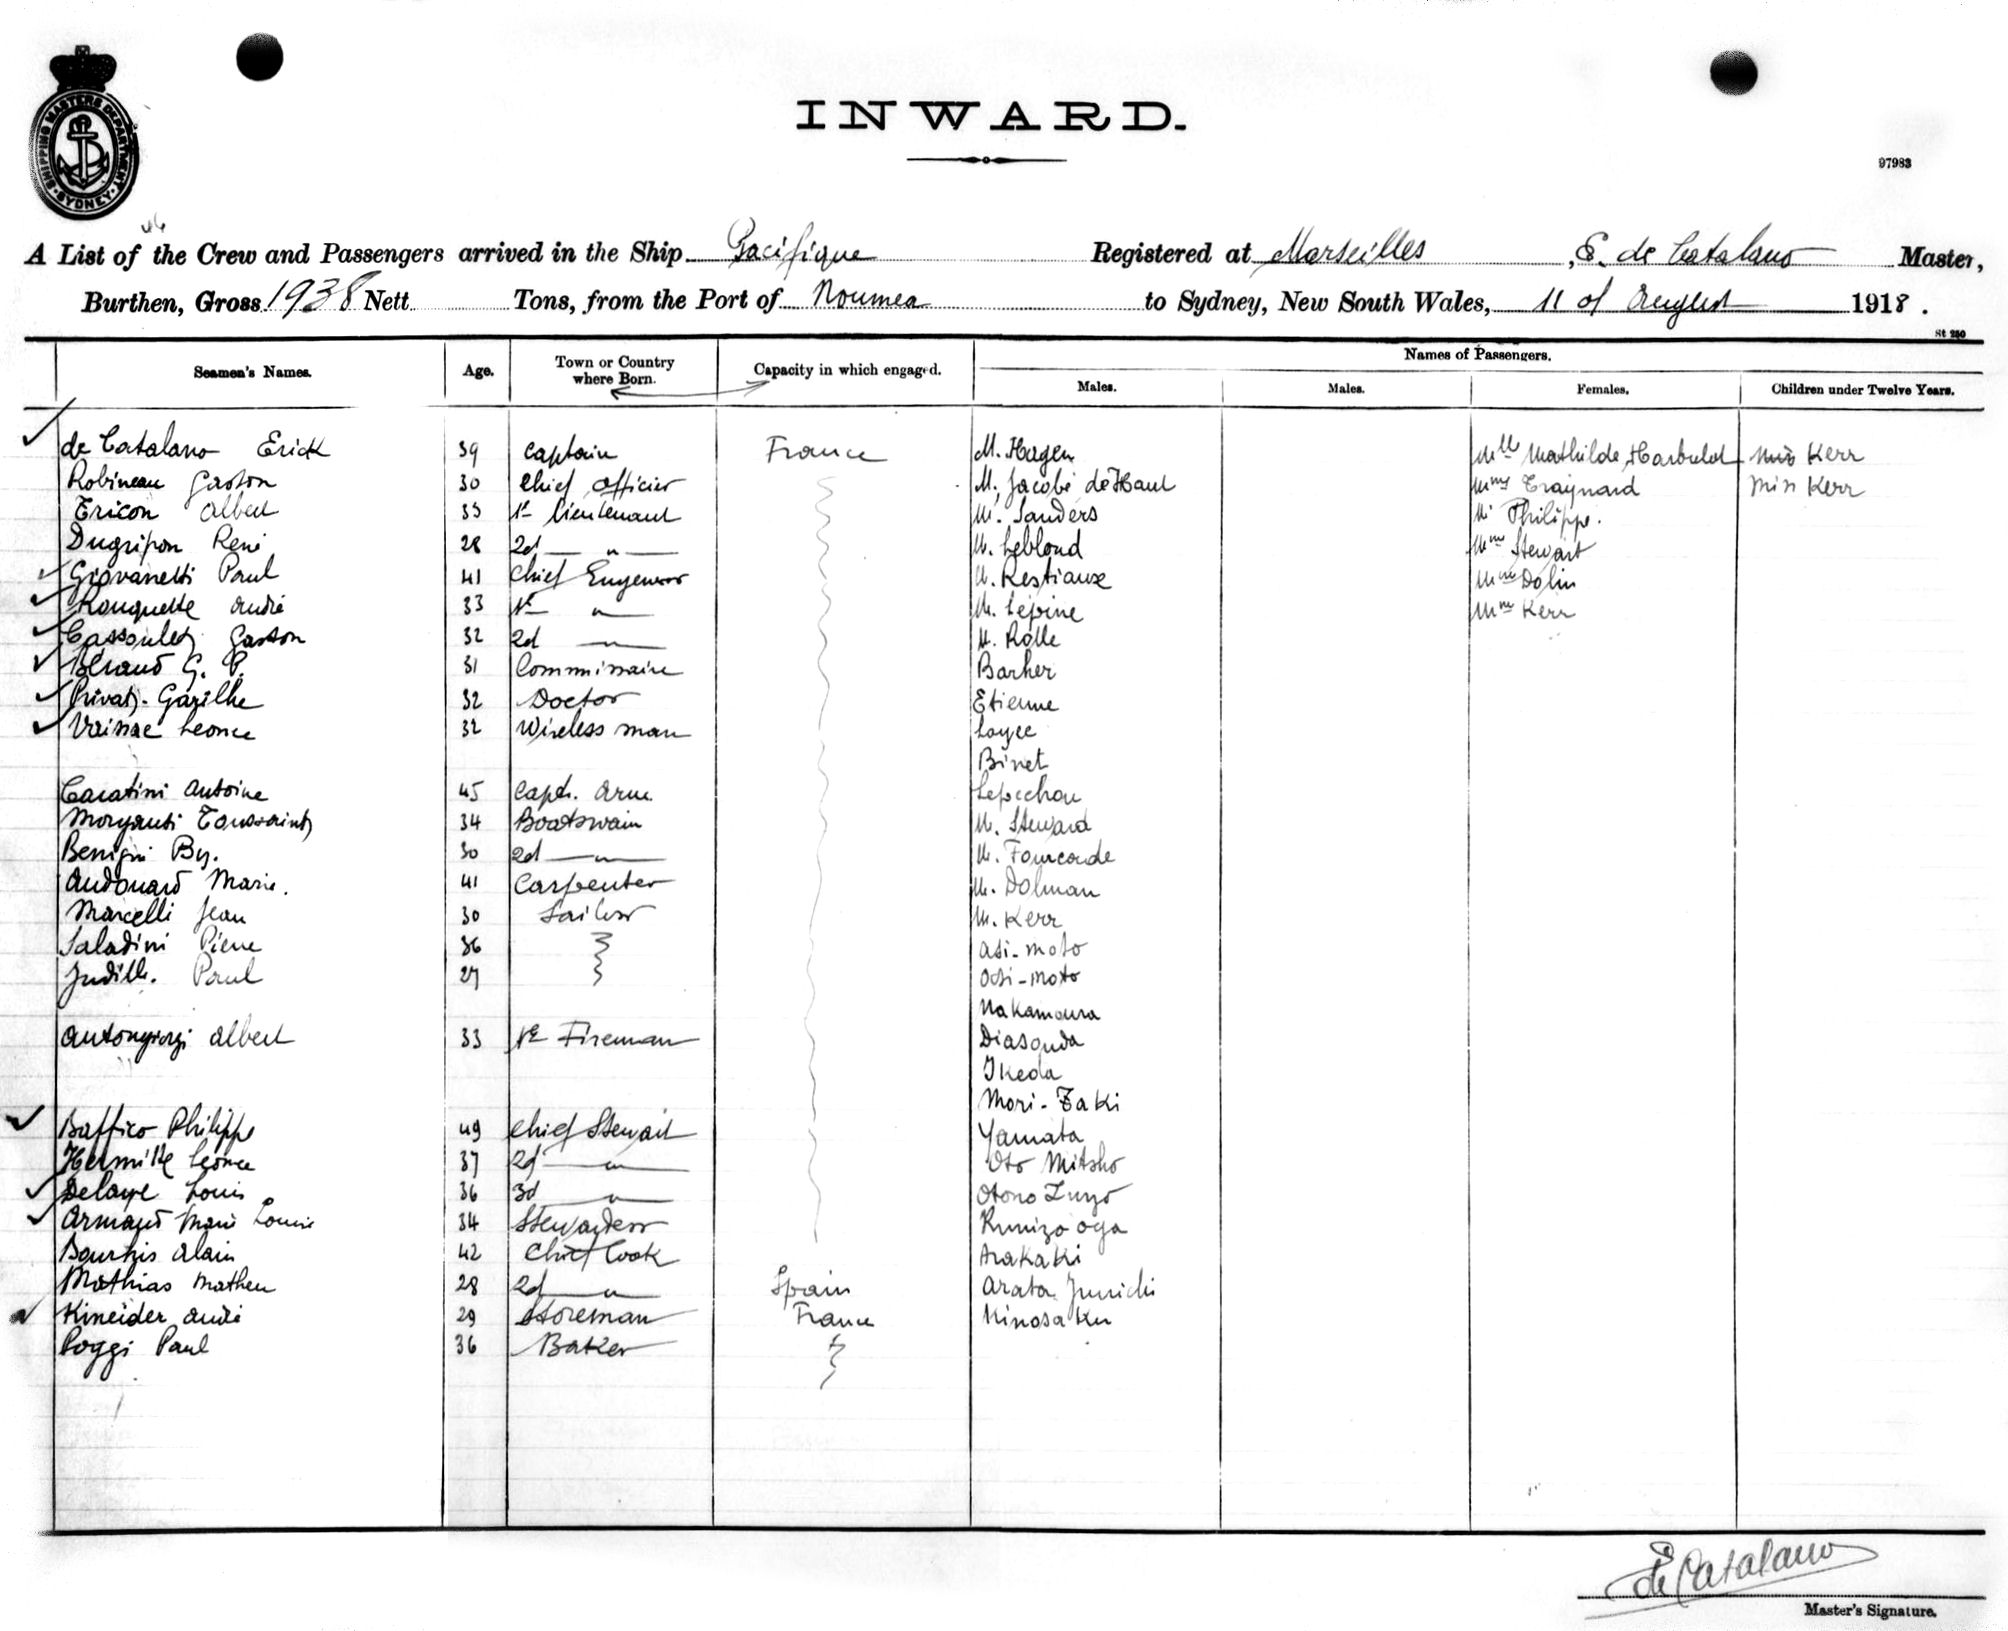 INWARD.
97983
SHIPPING MASTERS DEPARTMENT SYDNEY
A List of the Crew and Passengers arrived in the Ship Pacifique Registered at Marseilles, E. de Catalano Master,
Burthen, Gross 1938 Nett Tons, from the Port of Noumea to Sydney, New South Wales, 11 of August 1918.
St 250
Seamen's Names. Age. Town or Country where Born. Capacity in which engaged. Names of Passengers.
Males. Males. Females. Children under Twelve Years.
de Catalano Erick 39 Captain France M. Hagen Mlle Mathilde Miss Kerr
Robineau Gaston 30 Chief Officier M. Jacobé de Haut Mme Traynard Miss Kerr
Ericon Albert 33 1r Lieutenant M. Sanders M. Philippe.
Dugripon René 28 2d — " — M. Leblond Mme Stewart
Giovanetti Paul 41 Chief Engeneer M. Restiaux Mme Dolin
Rouquette André 33 1r — " — M. Lépine Mme Kerr
Cassoulet Gaston 32 2d — " — M. Rolle
Béraud G. P. 31 Commissaire Barher
Privat-Garilhe 32 Doctor Etienne
Leonce 32 Wireless man Loyee
Binet
Caratini Antoine 45 Capt. Arm. Lepechou
Morganti Toussaint 34 Boatswain M. Steward
Benigni By. 30 2d — " — M. Fourcade
Audouard Marie. 41 Carpenter M. Dolman
Marcelli Jean 30 Sailor M. Kerr
Saladini Pierre 36 Asi-moto
Paul 27 Osi-moto
Nakamoura
Antongiorgi Albert 33 1r Fireman Diasouda
Ikeda
Mori-Taki
Baffico Philippe 49 Chief Stewart Yamata
Hermitte Léonce 37 2d — " — Oto Mitsho
Delaye Louis 36 3d — " — Otono
Armand Marie Louise 34 Stewardess Kunizo Oya
Bourhis Alain 42 Chief Cook Arakaki
Mathias Matheu 28 2d — " — Spain Arata Junichi
Kineider André 29 Storeman France Kinosaku
Poggi Paul 36 Baker
E. de Catalano
Master's Signature.